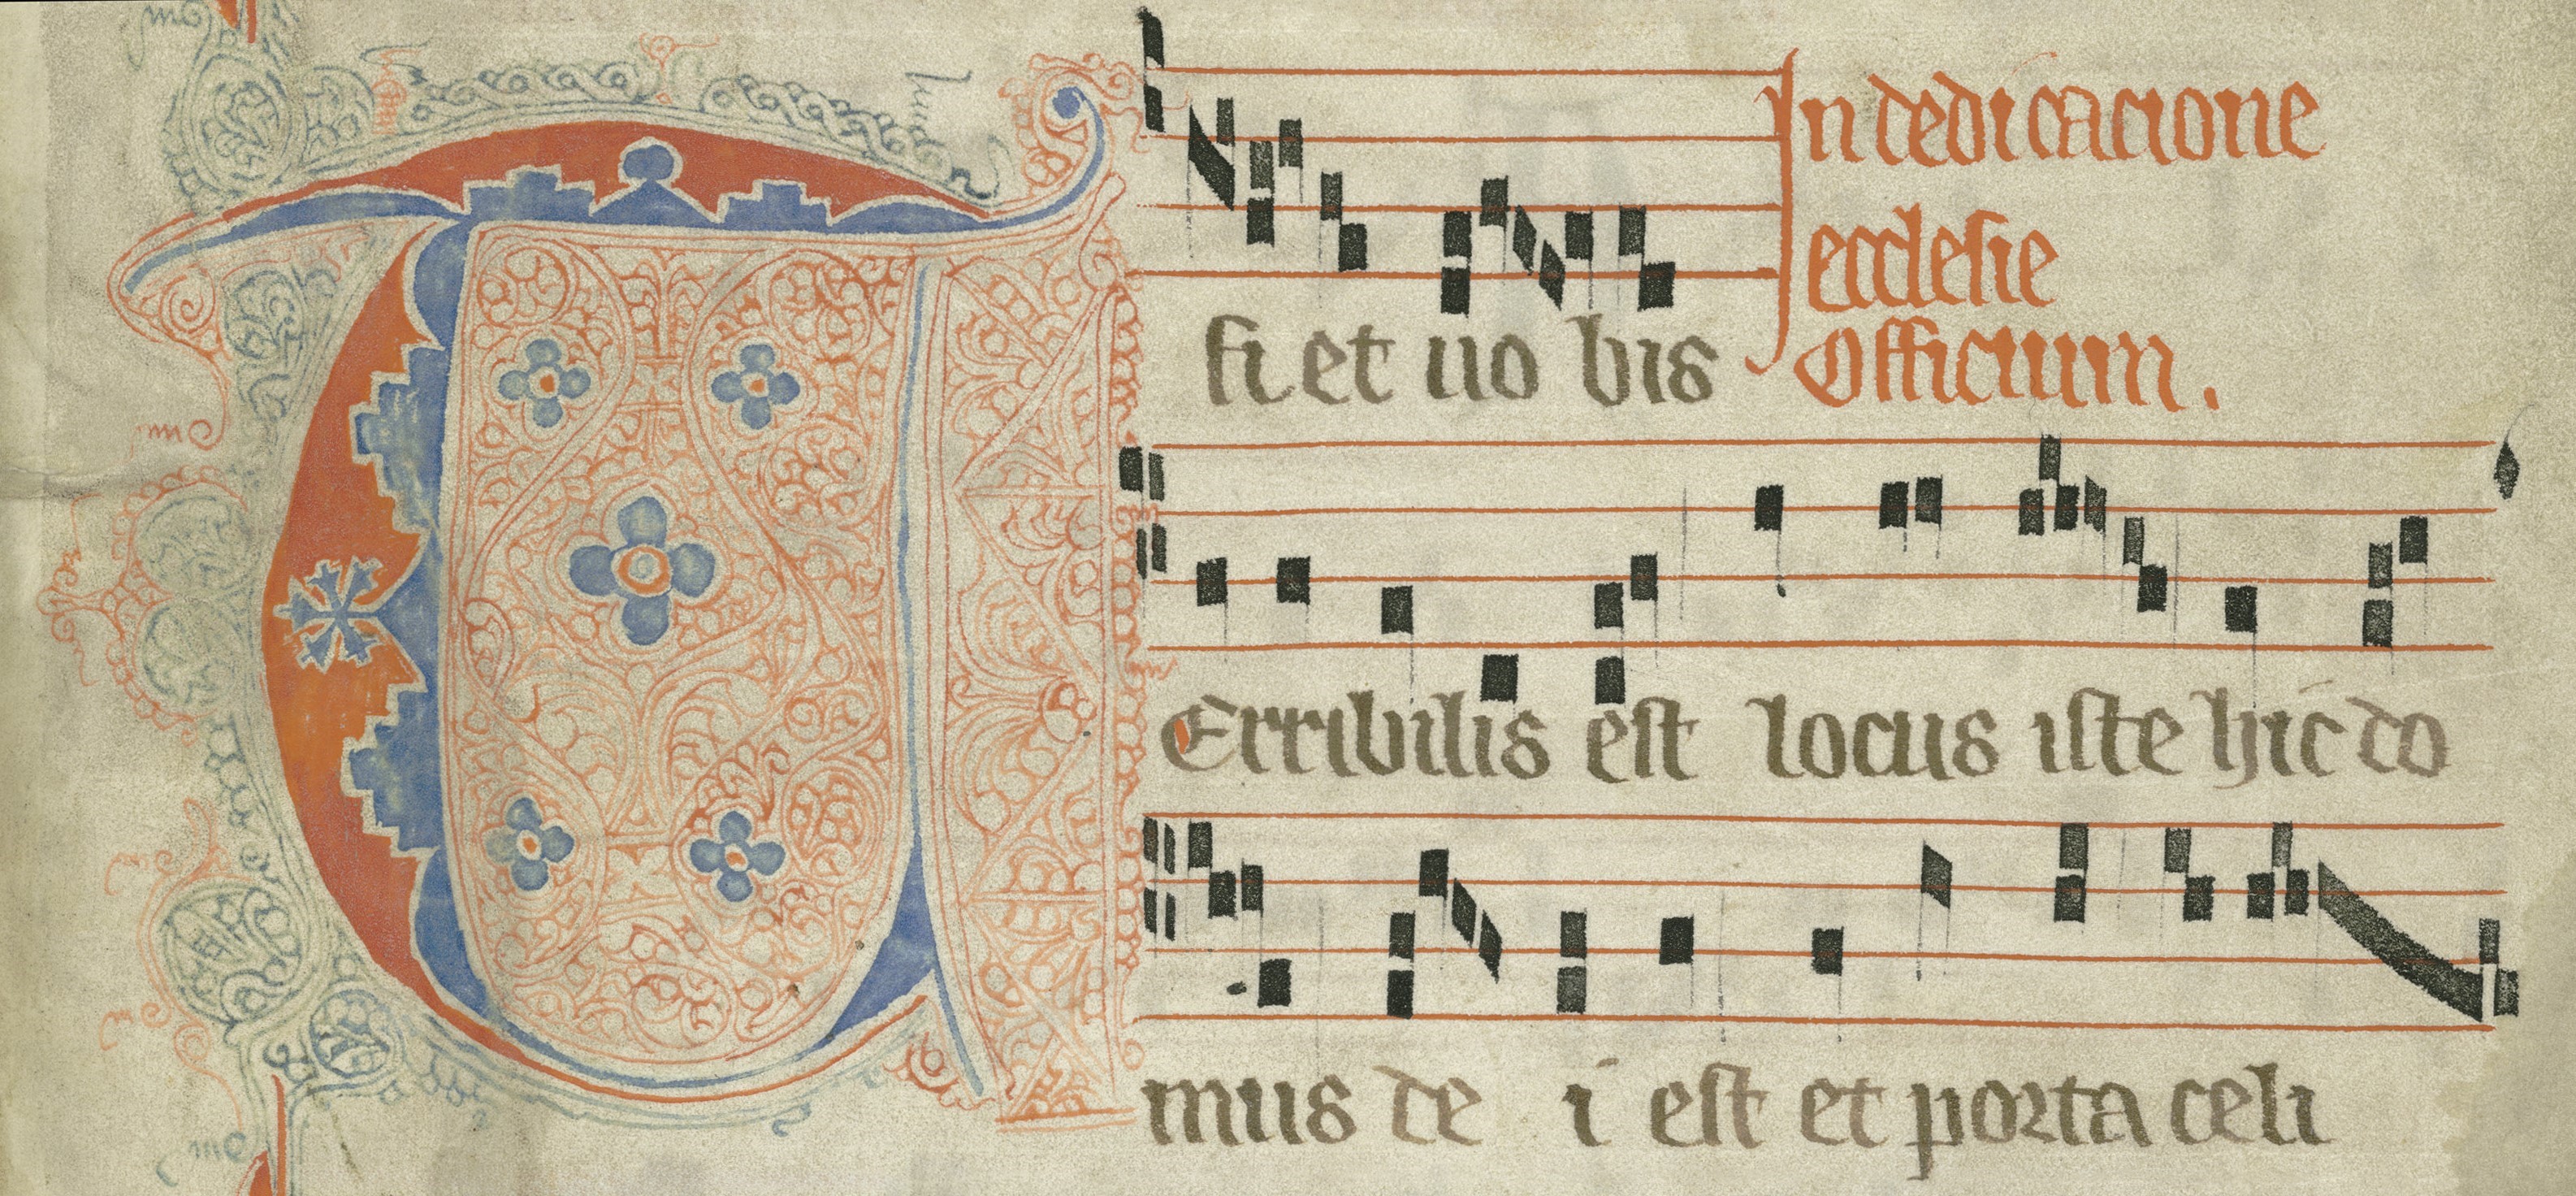 fi et uo bis
In dedicacione
ecclesie
Officium.
TErribilis est locus iste hic do
mus de i est et porta celi